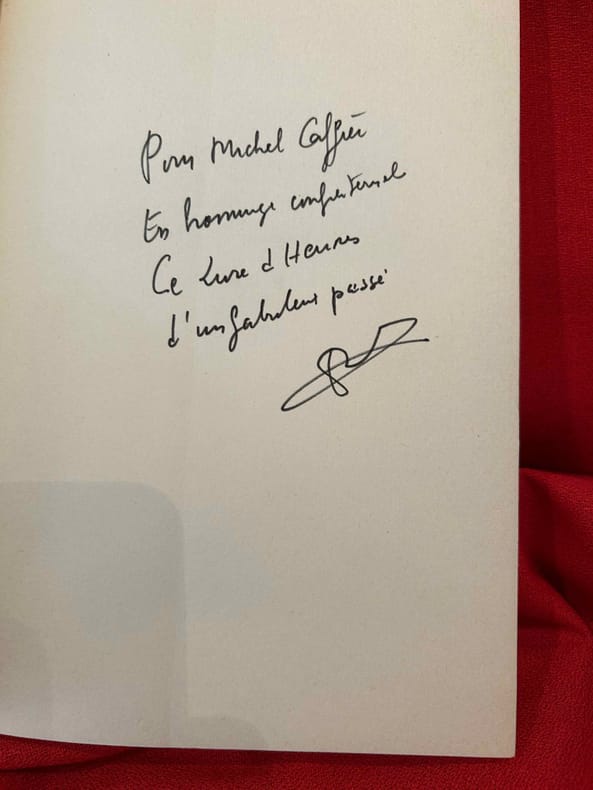 Pour Michel Caffier
En hommage confraternel
Ce Livre d'Heures
d'un fabuleux passé